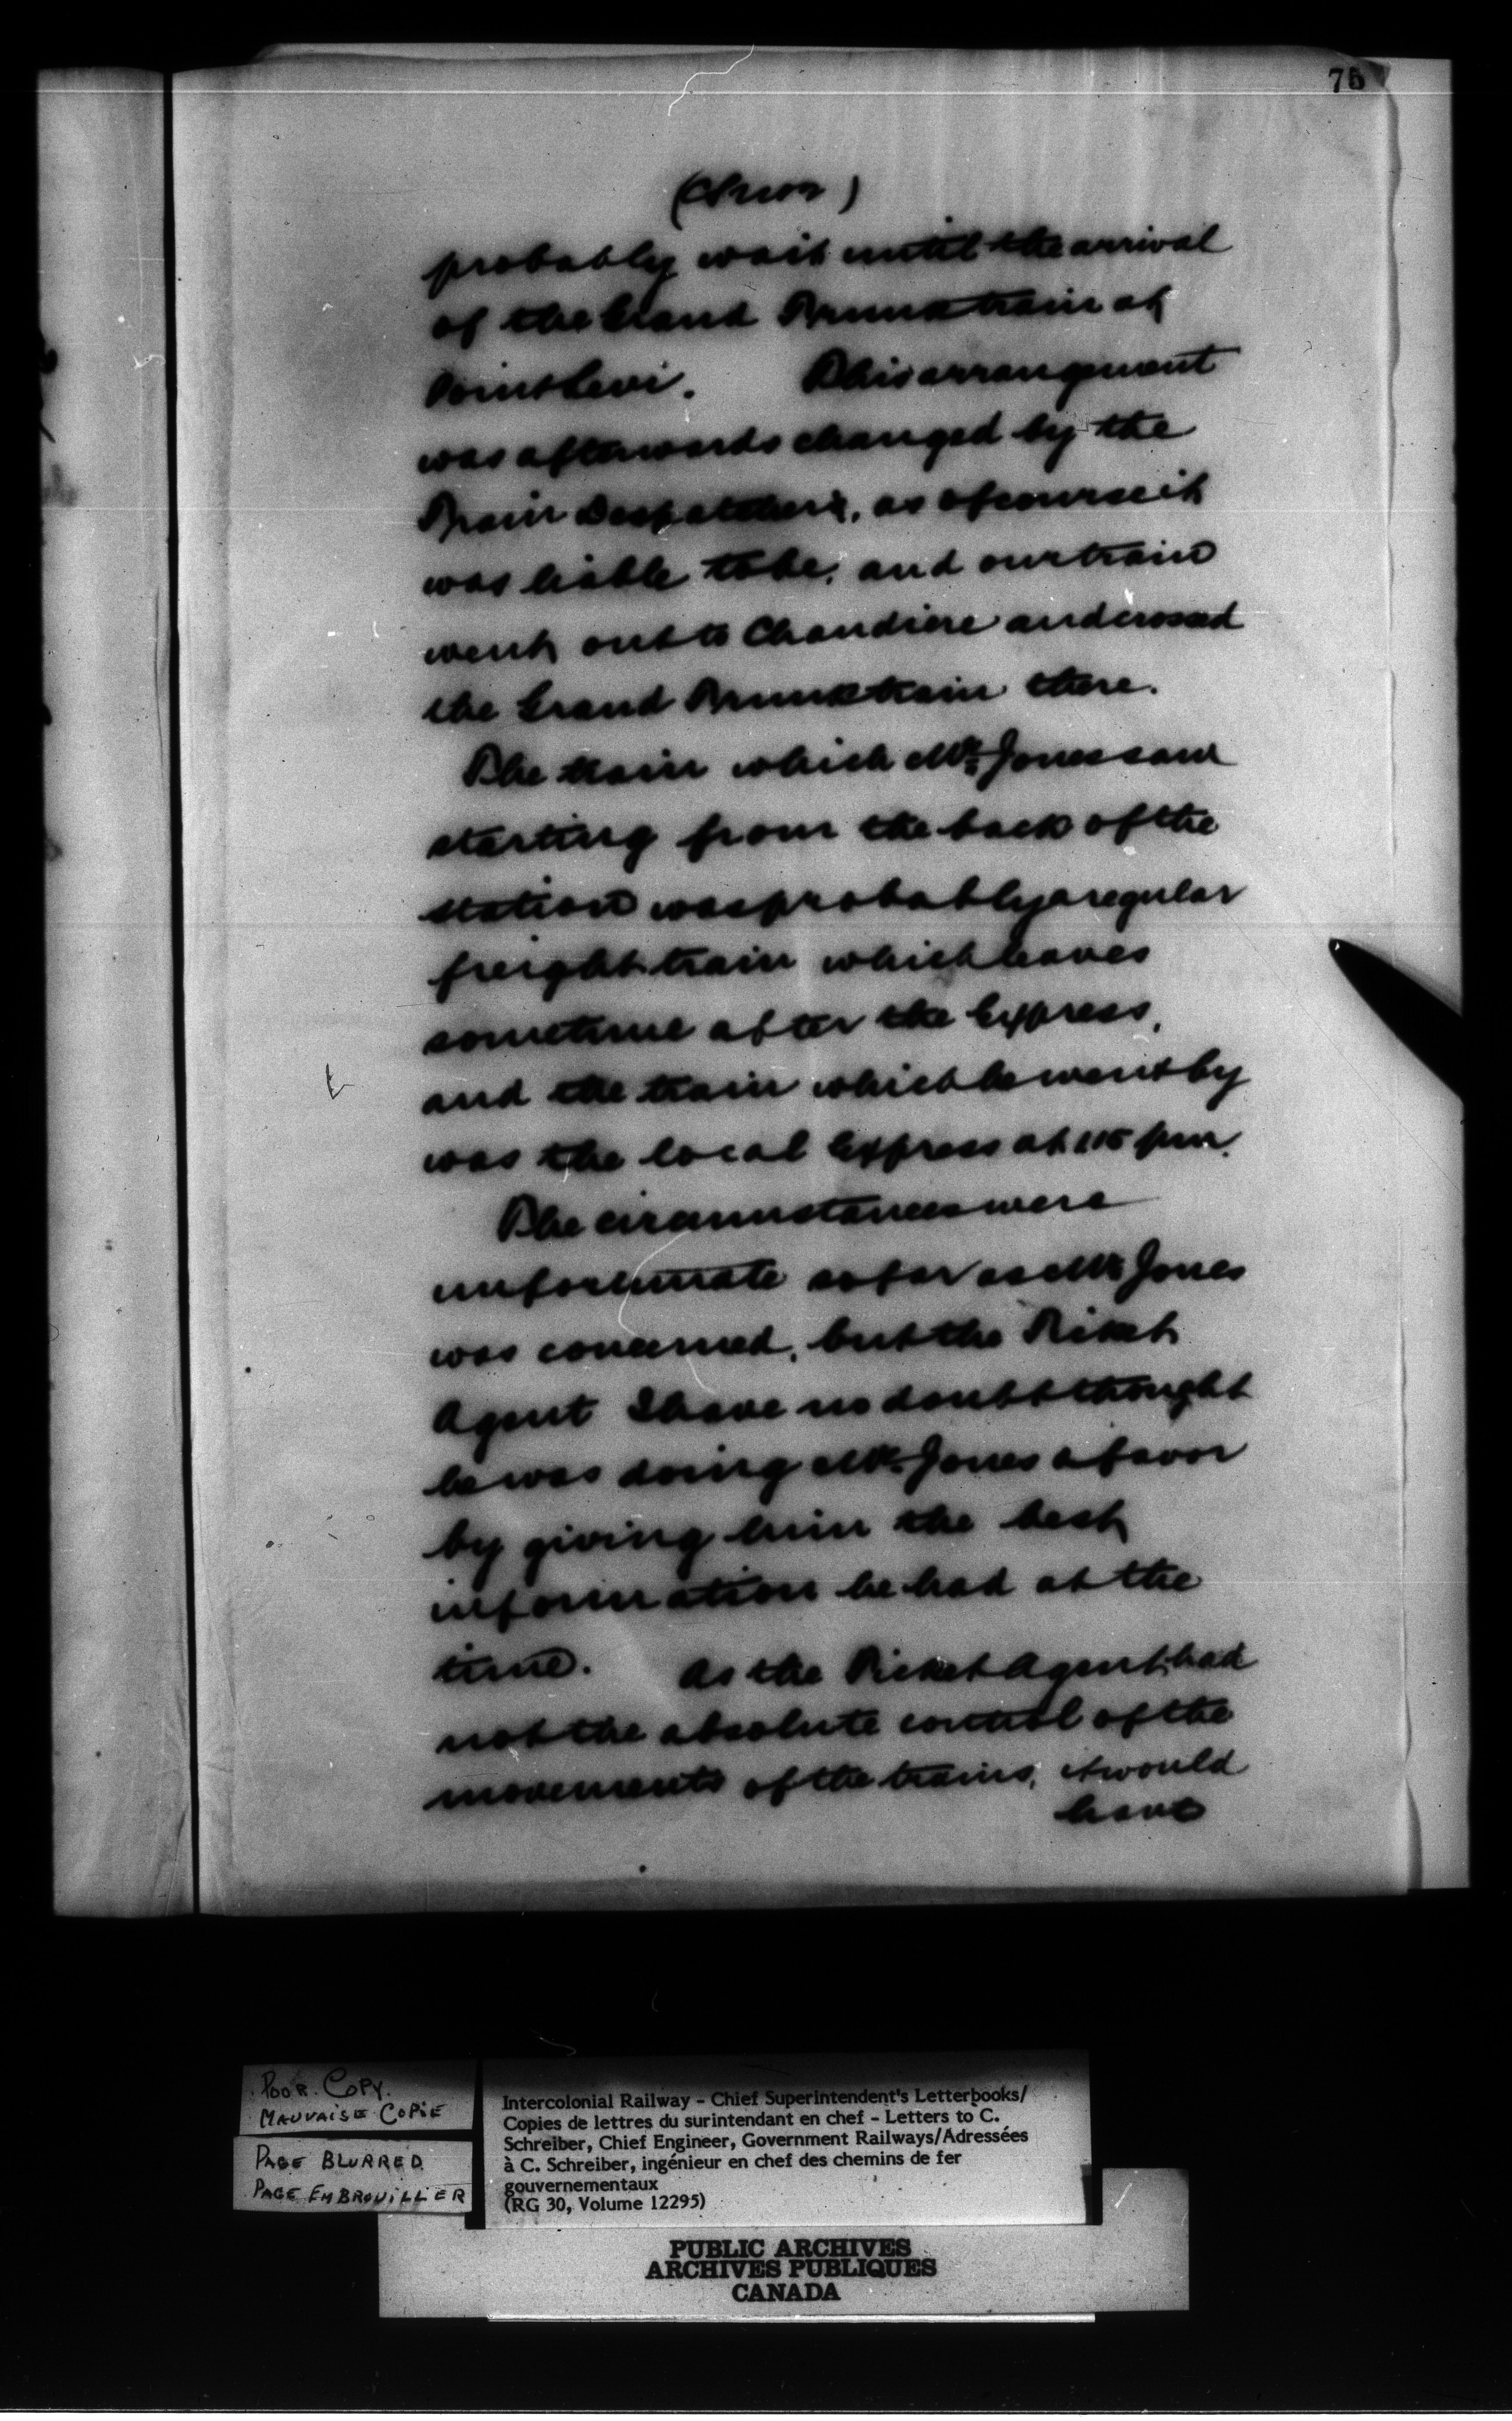 75
probably wait until the arrival
of the Grand Trunk train at
Point Levi. This arrangement
was afterwards changed by the
Train Despatchers, as of course it
was liable to be, and our train
went out to Chaudiere and crossed
the Grand Trunk train there.
The train which Mr. Jones saw
starting from the back of the
station was probably a regular
freight train which leaves
sometime after the Express,
and the train which he went by
was the local Express at 1.15 pm.
The circumstances were
unfortunate so far as Mr. Jones
was concerned, but the Ticket
Agent I have no doubt thought
he was doing Mr. Jones a favor
by giving him the best
information he had at the
time. As the Ticket Agent had
not the absolute control of the
movements of the trains, it would
have
POOR COPY.
MAUVAISE COPIE
PAGE BLURRED
PAGE EMBROUILLIER
Intercolonial Railway - Chief Superintendent's Letterbooks/
Copies de lettres du surintendant en chef - Letters to C.
Schreiber, Chief Engineer, Government Railways/Adressées
à C. Schreiber, ingénieur en chef des chemins de fer
gouvernementaux
(RG 30, Volume 12295)
PUBLIC ARCHIVES
ARCHIVES PUBLIQUES
CANADA